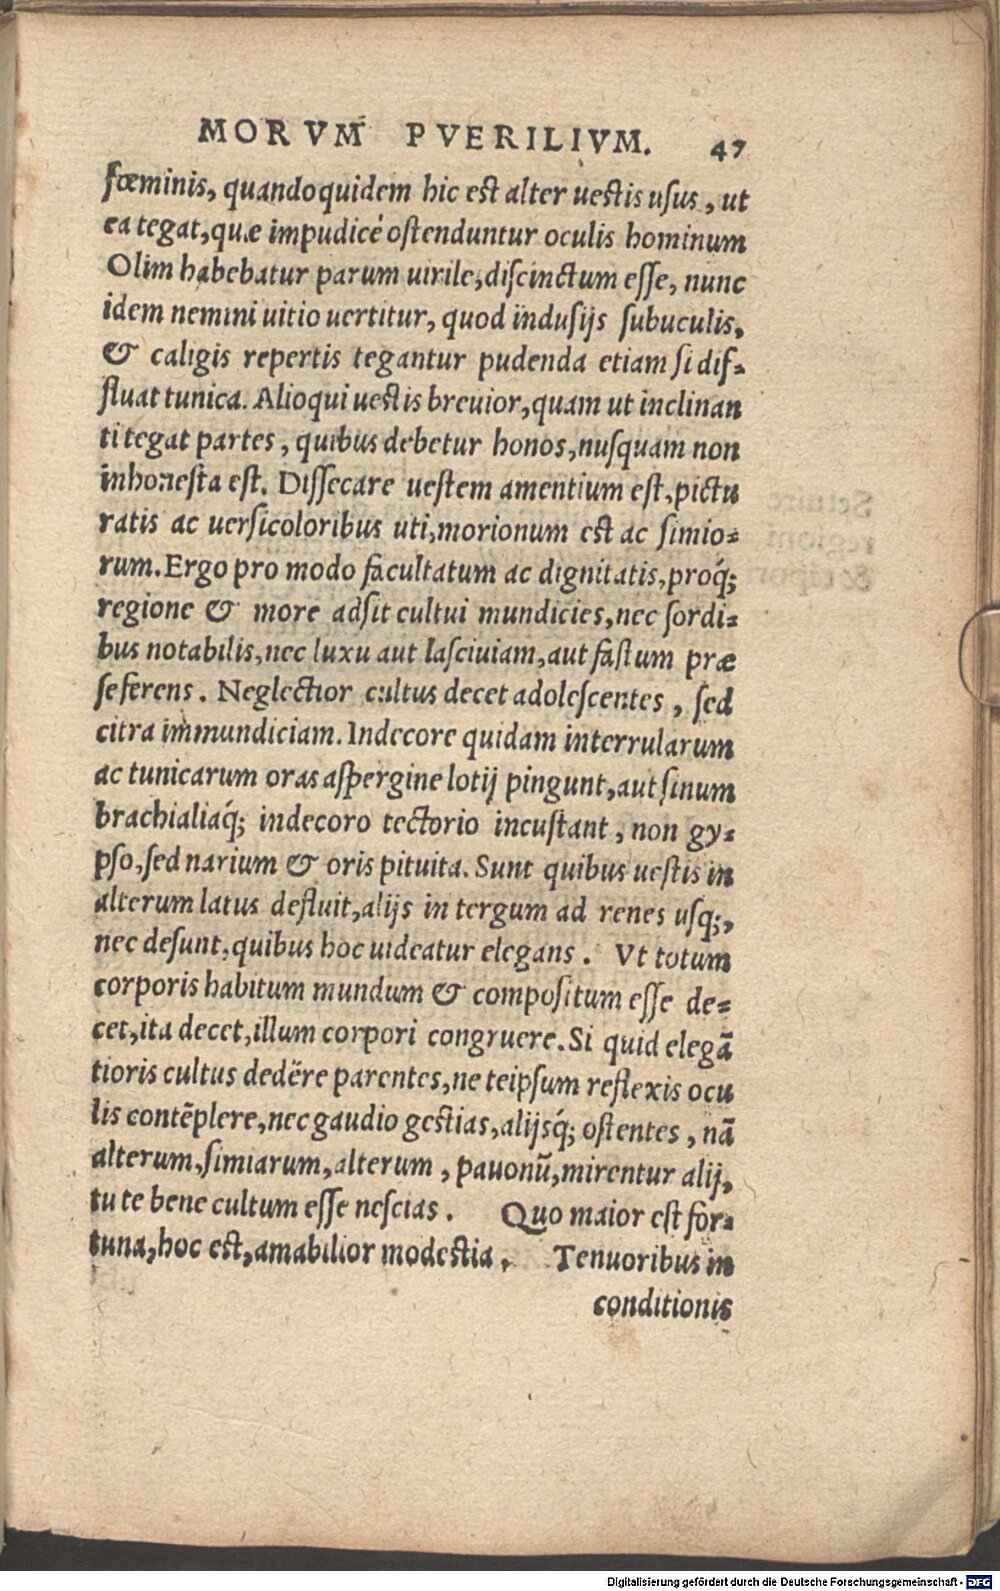 MORVM PVERILIVM. 47
fœminis, quandoquidem hic est alter uestis usus, ut
ea tegat, quæ impudicè ostenduntur oculis hominum
Olim habebatur parum uirile, discinctum esse, nunc
idem nemini uitio uertitur, quod indusijs subuculis,
& caligis repertis tegantur pudenda etiam si dif-
fluat tunica. Alioqui uestis breuior, quam ut inclinan
ti tegat partes, quibus debetur honos, nusquam non
inhonesta est. Dissecare uestem amentium est, pictu
ratis ac uersicoloribus uti, morionum est ac simio-
rum. Ergo pro modo facultatum ac dignitatis, proq́;
regione & more adsit cultui mundicies, nec sordi-
bus notabilis, nec luxu aut lasciuiam, aut fastum præ
se ferens. Neglectior cultus decet adolescentes, sed
citra immundiciam. Indecore quidam interrularum
ac tunicarum oras aspergine lotij pingunt, aut sinum
brachialiaq́; indecoro tectorio incustant, non gy-
pso, sed narium & oris pituita. Sunt quibus uestis in
alterum latus defluit, alijs in tergum ad renes usq;,
nec desunt, quibus hoc uideatur elegans. Vt totum
corporis habitum mundum & compositum esse de-
cet, ita decet, illum corpori congruere. Si quid elegā
tioris cultus dedêre parentes, ne teipsum reflexis ocu
lis contēplere, nec gaudio gestias, alijsq́; ostentes, nā
alterum, simiarum, alterum, pauonū, mirentur alij,
tu te bene cultum esse nescias. Quo maior est for-
tuna, hoc est, amabilior modestia. Tenuoribus in
conditionis
Digitalisierung gefördert durch die Deutsche Forschungsgemeinschaft - DFG